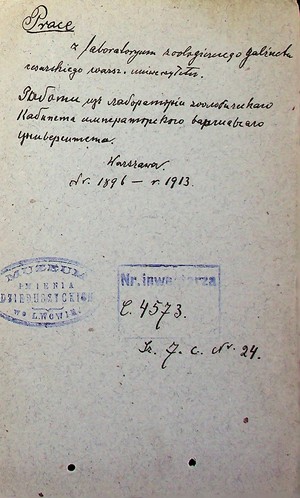 Prace
z laboratoryum zoologicznego gabinetu
cesarskiego warsz. uniwersytetu.
Работы изъ лабораторіи зоологическаго
Кабинета императорскаго варшавскаго
университета.
Warszawa.
Nr. 1896 — r. 1913.
MUZEUM
IMIENIA
DZIEDUSZYCKICH
we LWOWIE
Nr. inwentarza
C. 4573.
7. c. Nr. 24.